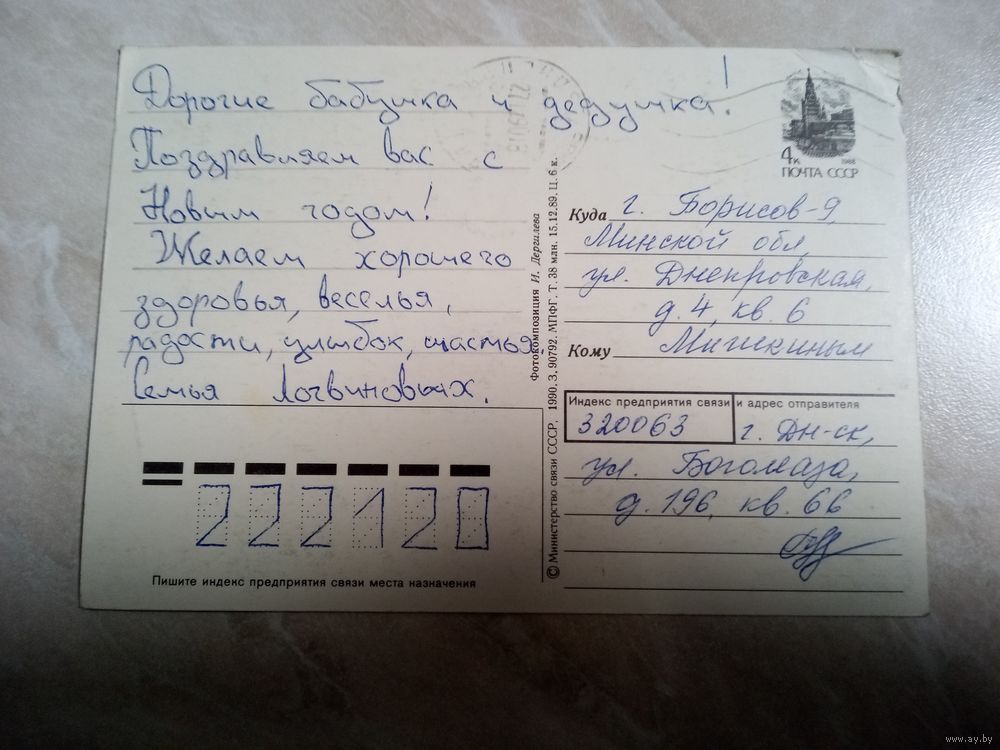 Дорогие бабушка и дедушка!
Поздравляем вас с
Новым годом!
Желаем хорошего
здоровья, веселья,
радости, улыбок, счастья.
Семья Логвиновых.
222120
Пишите индекс предприятия связи места назначения
© Министерство связи СССР. 1990. З. 90792. МПФГ. Т. 38 млн. 15.12.89. Ц. 6 к.
Фотокомпозиция И. Дергилева
4к 1988
ПОЧТА СССР
Куда г. Борисов-9
Минской обл,
ул. Днепровская,
д. 4, кв. 6
Кому Мишкиным
Индекс предприятия связи и адрес отправителя
320063 г. Дн-ск,
ул. Богомаза,
д. 196, кв. 66
www.ay.by